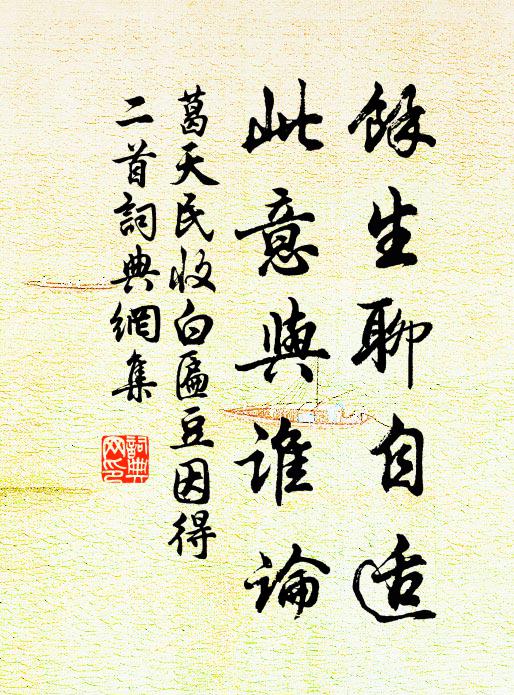 餘生聊自适
此意與誰論
葛天民收白匾豆因得
二首詞典網集
詞典
网印